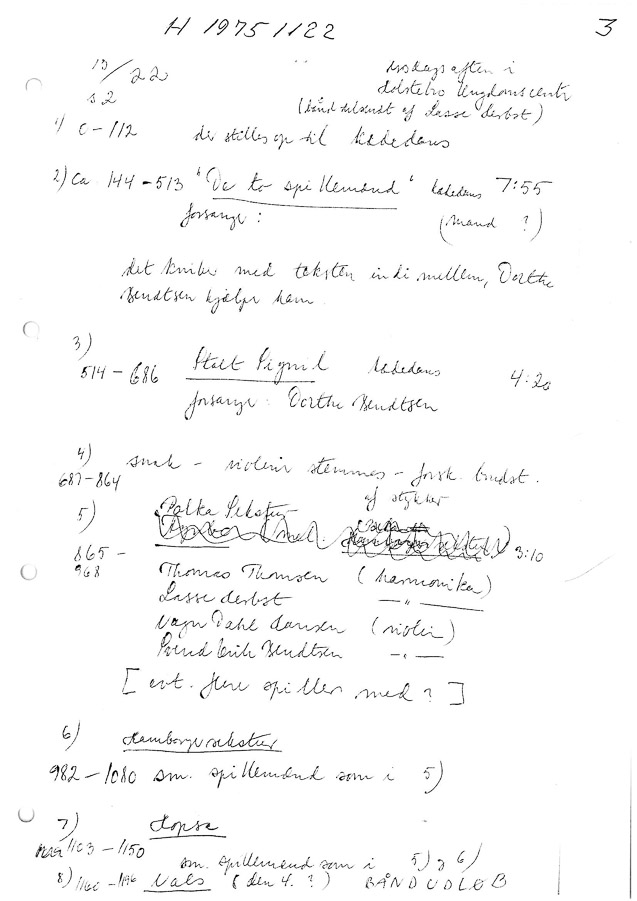 H 1975 1122 3
19/22 onsdagsaften i
s 2 Holstebro Ungdomscentr
(bånd tilsendt af Lasse Herbst)
1) 0-112 der stilles op til kædedans
2) ca 144-513 "De to spillemænd" kædedans 7:55
forsanger: (mand ?)
det kniber med teksten indimellem, Dorthe
Bendtsen hjælper ham.
3)
514-686 Stalt Signil kædedans 4:20
forsanger: Dorthe Bendtsen
4) snak - violin stemmes - forsk. brudst.
687-864 af stykker
5) Polka
865- 3:10
968 Thomas Thomsen (harmonika)
Lasse Herbst -"-
Vagn Dahl Hansen (violin)
Svend Erik Bendtsen -"-
[evt. flere spiller med?]
6) Hamborgsekstur
982-1080 sm. spillemænd som i 5)
7) Hopsa
1103-1150
sm. spillemænd som i 5) og 6)
8) 1160-1196 Vals (den 4.?) BÅND UDLØB